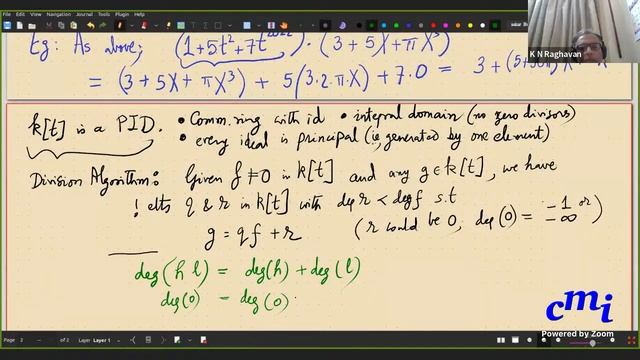 K N Raghavan
Eg: As above; (1+5t²+7t²⁰²²) · (3+5X+πX³)
= (3+5X+πX³) + 5(3·2·π·X) + 7·0 = 3+(5+30π)X+πX³
k[t] is a PID. • Comm. ring with id • integral domain (no zero divisors)
• every ideal is principal (ie, generated by one element)
Division Algorithm: Given f≠0 in k[t] and any g∈k[t], we have
! elts q & r in k[t] with deg r < deg f s.t
g = qf + r (r could be 0, deg(0) = -1 or -∞)
deg(h l) = deg(h) + deg(l)
deg(0) = deg(0)
cmi
Powered by Zoom
Page 2 of 2 Layer Layer 1